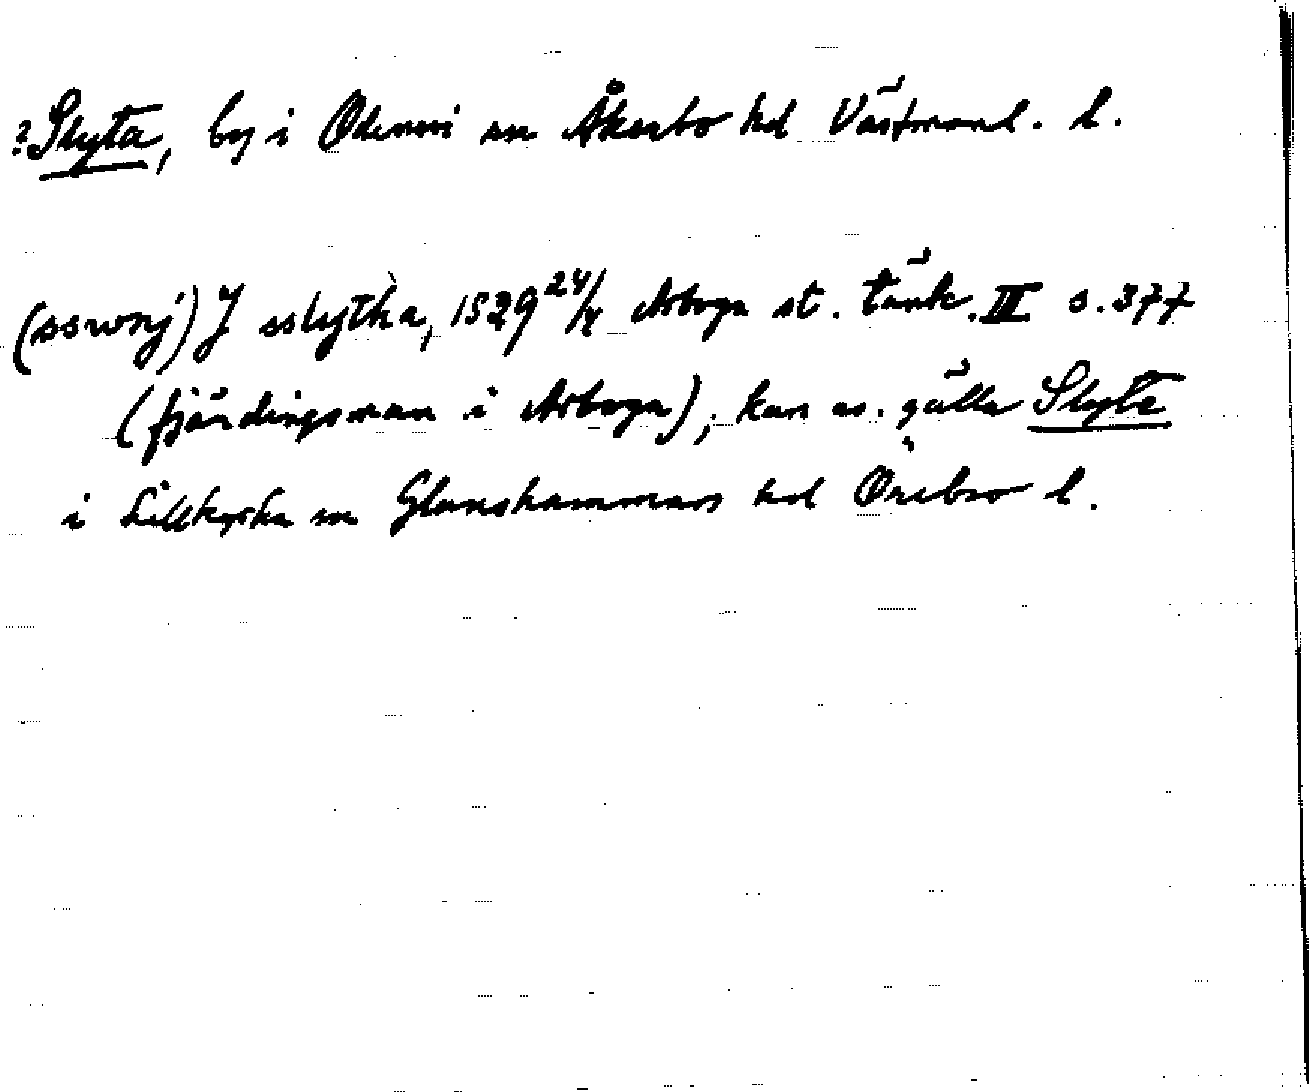 ? Skyta, by i Odensvi sn Åkerbo hd Västmanl. l.
J sskytha, 1529 24/4 Arboga st. tänk. III s. 377
(fjärdingsman i Arboga), kan ev. gälla Skyte
i Lillkyrka sn Glanshammars hd Örebro l.